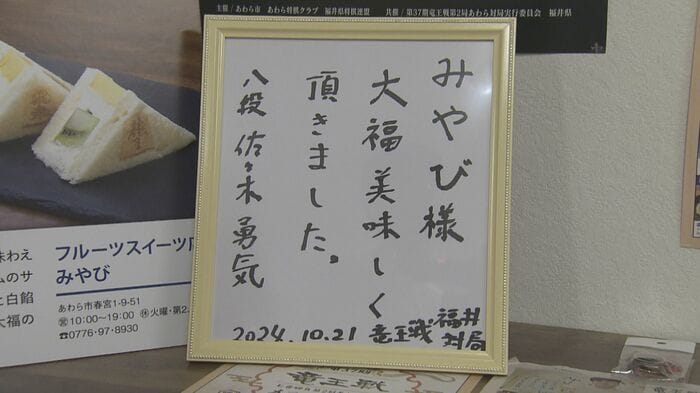 主催 / あわら市 あわら将棋クラブ 福井県将棋連盟 共催 / 第37期竜王戦第2局あわら対局実行委員会 福井県
みやび様
大福美味しく
頂きました。
八段 佐々木勇気
2024.10.21 竜王戦福井
対局
味わえ
ムのサ
と白餡
大福の
フルーツスイーツ
みやび
あわら市春宮1-9-51
営10:00〜19:00 休火曜・第2
☎0776-97-8930
竜王戦